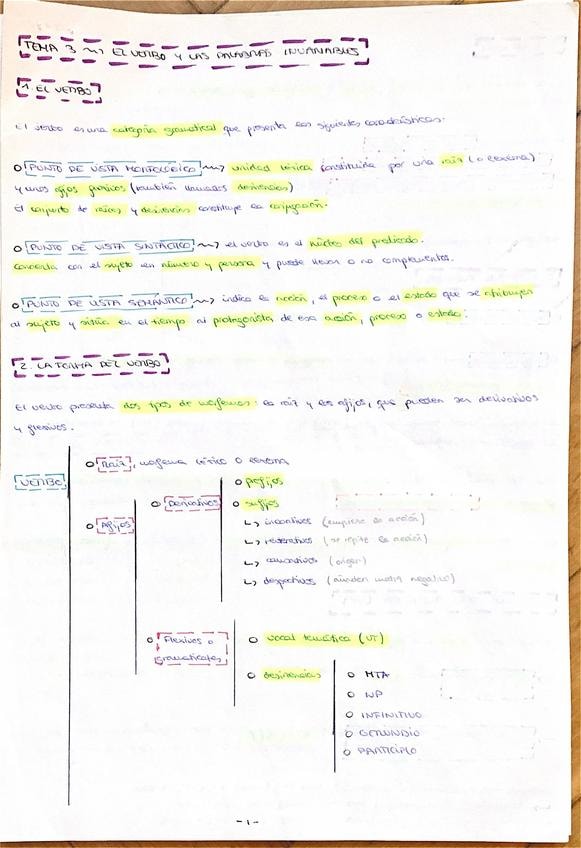 TEMA 3 ~> EL VERBO Y LAS PALABRAS INVARIABLES
1. EL VERBO
El verbo es una categoría gramatical que presenta las siguientes características:
○ PUNTO DE VISTA MORFOLÓGICO ~> unidad léxica constituida por una raíz (o lexema)
y unos afijos flexivos (también llamados desinencias)
El conjunto de raíces y desinencias constituye la conjugación.
○ PUNTO DE VISTA SINTÁCTICO ~> el verbo es el núcleo del predicado.
Concuerda con el sujeto en número y persona y puede llevar o no complementos.
○ PUNTO DE VISTA SEMÁNTICO ~> indica la acción, el proceso o el estado que se atribuyen
al sujeto y sitúa en el tiempo al protagonista de esa acción, proceso o estado.
2. LA FORMA DEL VERBO
El verbo presenta dos tipos de morfemas: la raíz y los afijos, que pueden ser derivativos
y flexivos.
VERBO
○ Raíz, morfema léxico o lexema
○ Afijos
○ Derivativos
○ prefijos
○ sufijos
↳ incoativos (empieza la acción)
↳ reiterativos (se repite la acción)
↳ causativos (origen)
↳ despectivos (añaden matiz negativo)
○ Flexivos o
gramaticales
○ vocal temática (VT)
○ desinencias
○ MTA
○ NP
○ INFINITIVO
○ GERUNDIO
○ PARTICIPIO
-1-